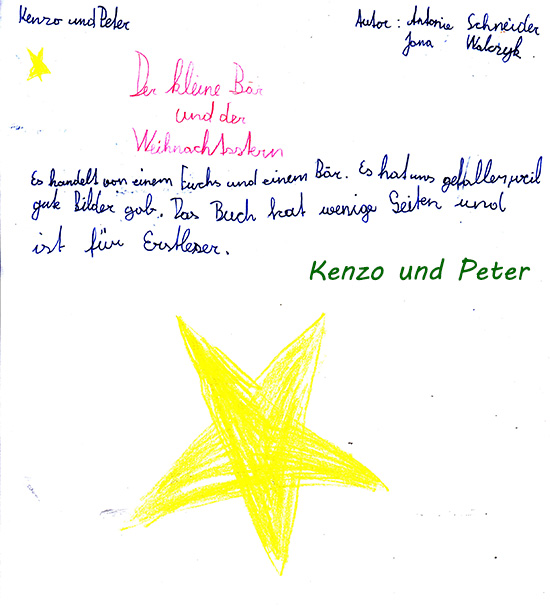 Kenzo und Peter
Autor: Antonie Schneider
Jana Walczyk.
Der kleine Bär
und der
Weihnachtsstern
Es handelt von einem Fuchs und einem Bär. Es hat uns gefallen, weil
gute Bilder gab. Das Buch hat wenige Seiten und
ist für Erstleser.
Kenzo und Peter